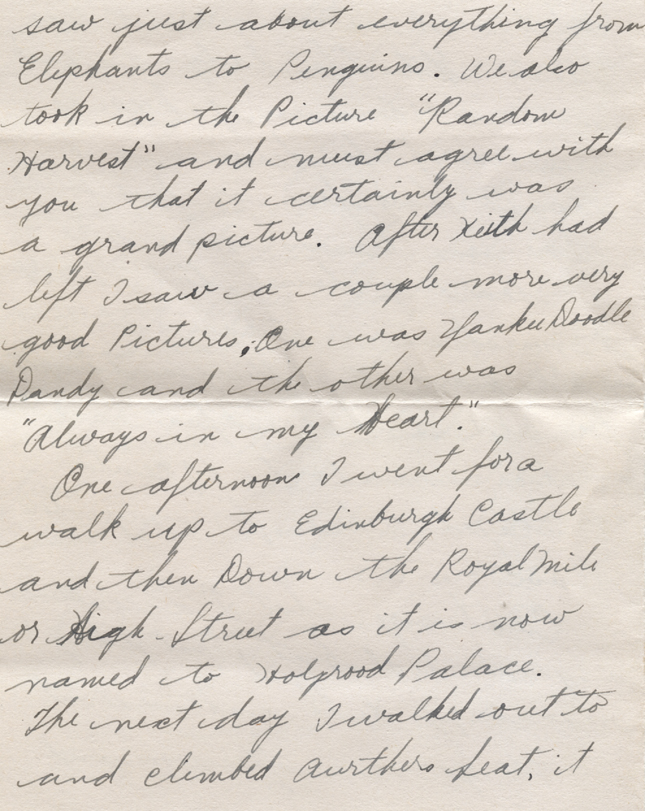 saw just about everything from
Elephants to Penguins. We also
took in the Picture "Random
Harvest" and must agree with
you that it certainly was
a grand picture. After Keith had
left I saw a couple more very
good Pictures, One was Yankee Doodle
Dandy and the other was
"Always in my Heart."
One afternoon I went for a
walk up to Edinburgh Castle
and then Down the Royal Mile
or High Street as it is now
named to Holyrood Palace.
The next day I walked out to
and climbed Aurthers Seat, it